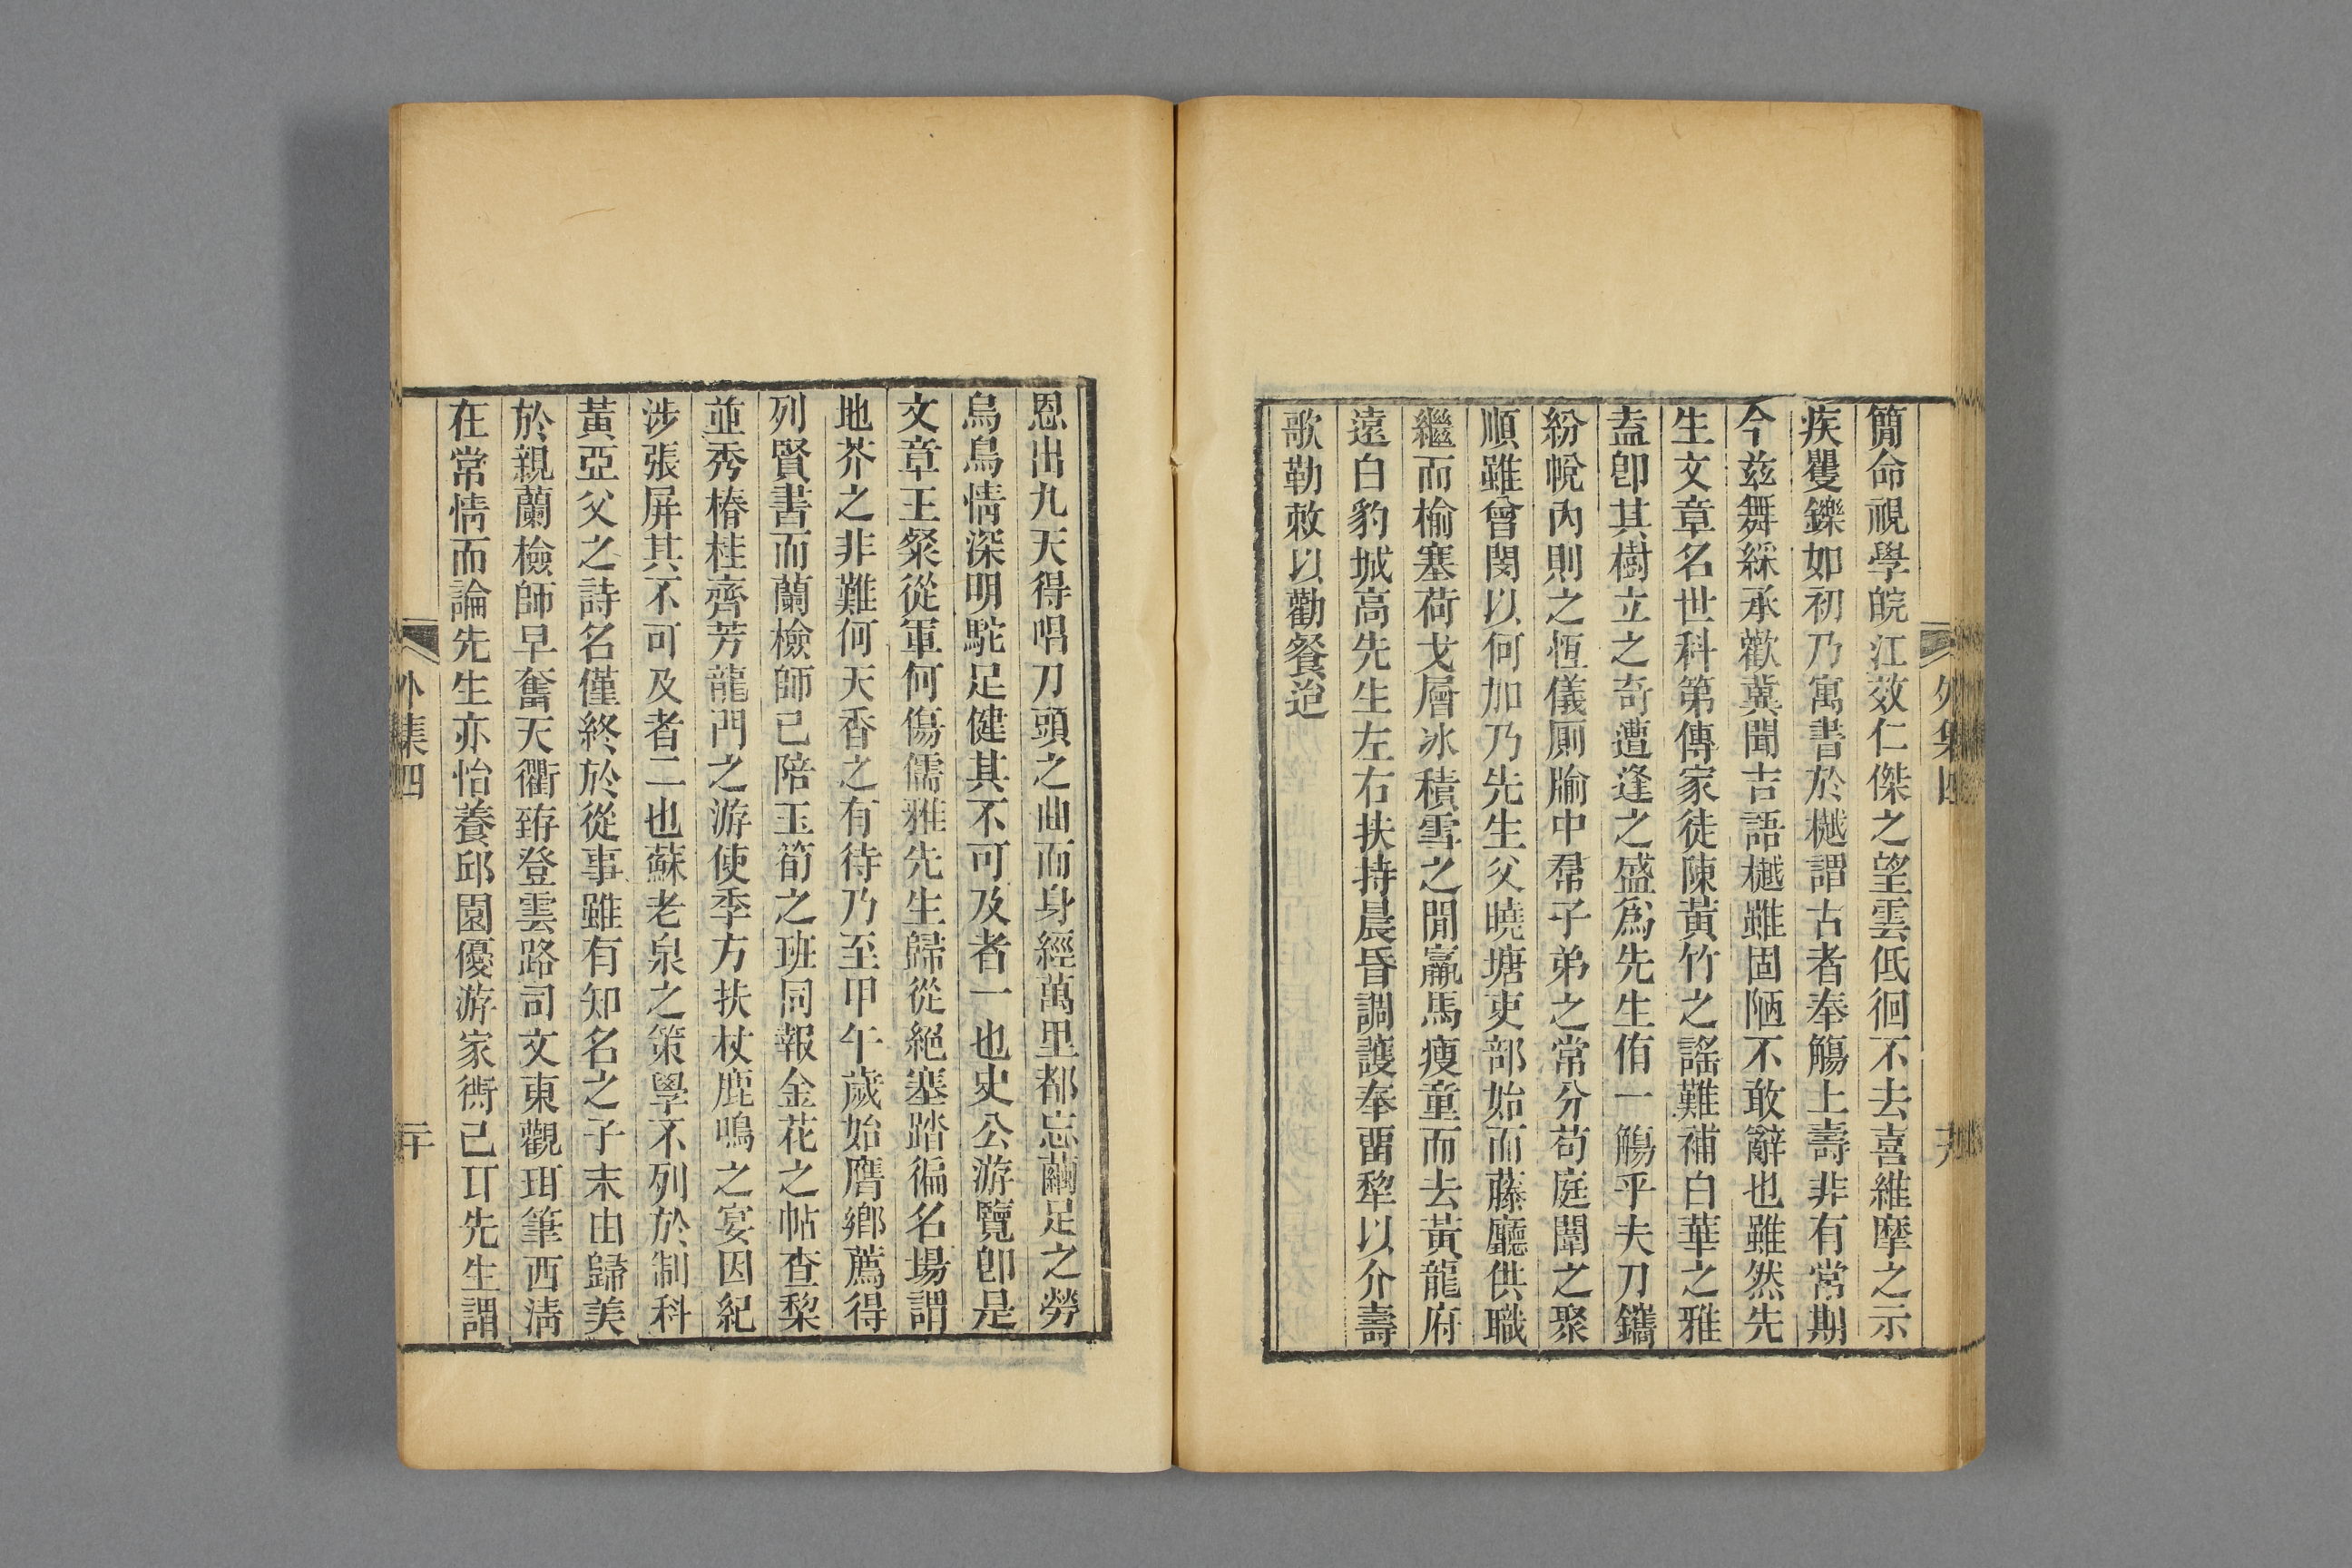 簡命視學皖江效仁傑之望雲低徊不去喜維摩之示
疾矍鑠如初乃寓書於樾謂古者奉觴上壽非有常期
今兹舞綵承歡冀聞吉語樾雖固陋不敢辭也雖然先
生文章名世科第傳家徒陳黃竹之謠難補白華之雅
盍卽其樹立之奇遭逢之盛爲先生侑一觴乎夫刀鑴
紛帨內則之恆儀厠牏中帬子弟之常分苟庭闈之聚
順雖曾閔以何加乃先生父曉塘吏部始而藤廳供職
繼而榆塞荷戈層冰積雪之閒羸馬瘦童而去黃龍府
遠白豹城高先生左右扶持晨昏調護奉畱犂以介壽
歌勒敕以勸餐迨
外集四
恩出九天得唱刀頭之曲而身經萬里都忘繭足之勞
烏鳥情深明駝足健其不可及者一也史公游覽卽是
文章王粲從軍何傷儒雅先生歸從絕塞踏徧名場謂
地芥之非難何天香之有待乃至甲午歲始膺鄉薦得
列賢書而蘭檢師已陪玉筍之班同報金花之帖查棃
並秀椿桂齊芳龍門之游使季方扶杖鹿鳴之宴因紀
涉張屏其不可及者二也蘇老泉之策學不列於制科
黃亞父之詩名僅終於從事雖有知名之子末由歸美
於親蘭檢師早奮天衢洊登雲路司文東觀珥筆西淸
在常情而論先生亦怡養邱園優游家衖己耳先生謂
外集四
二十